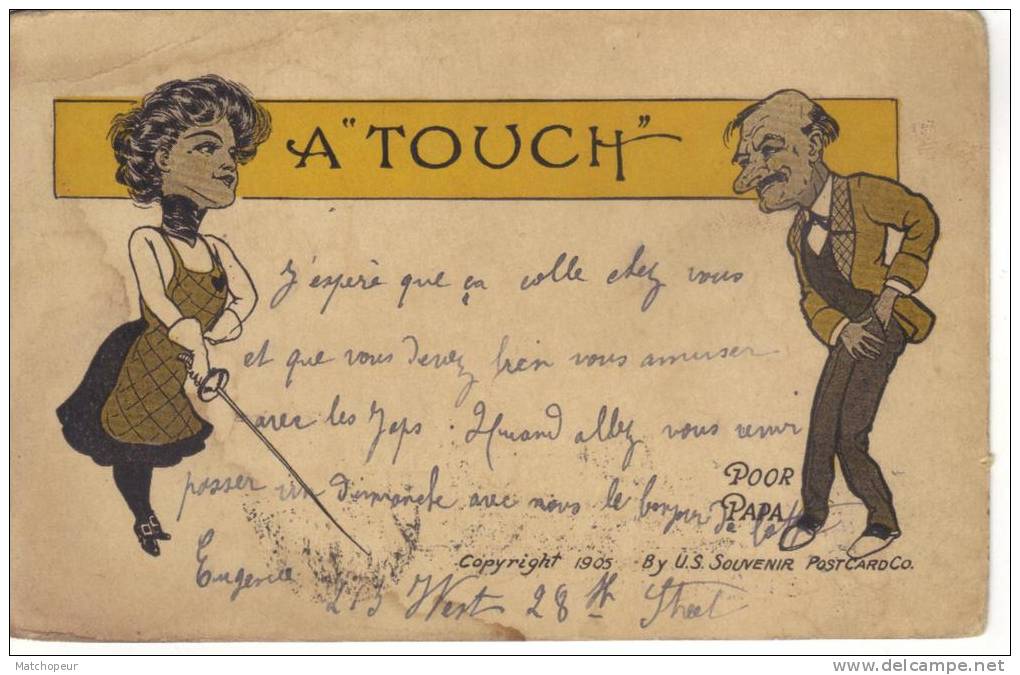 A "TOUCH"
J'espère que ça colle chez vous
et que vous devez bien vous amuser
avec les Japs. Quand allez vous venir
passer un dimanche avec nous le bonjour de
POOR
PAPA
Eugenie
Copyright 1905 By U.S. SOUVENIR POSTCARD CO.
213 West 28th Street
Matchopeur
www.delcampe.net